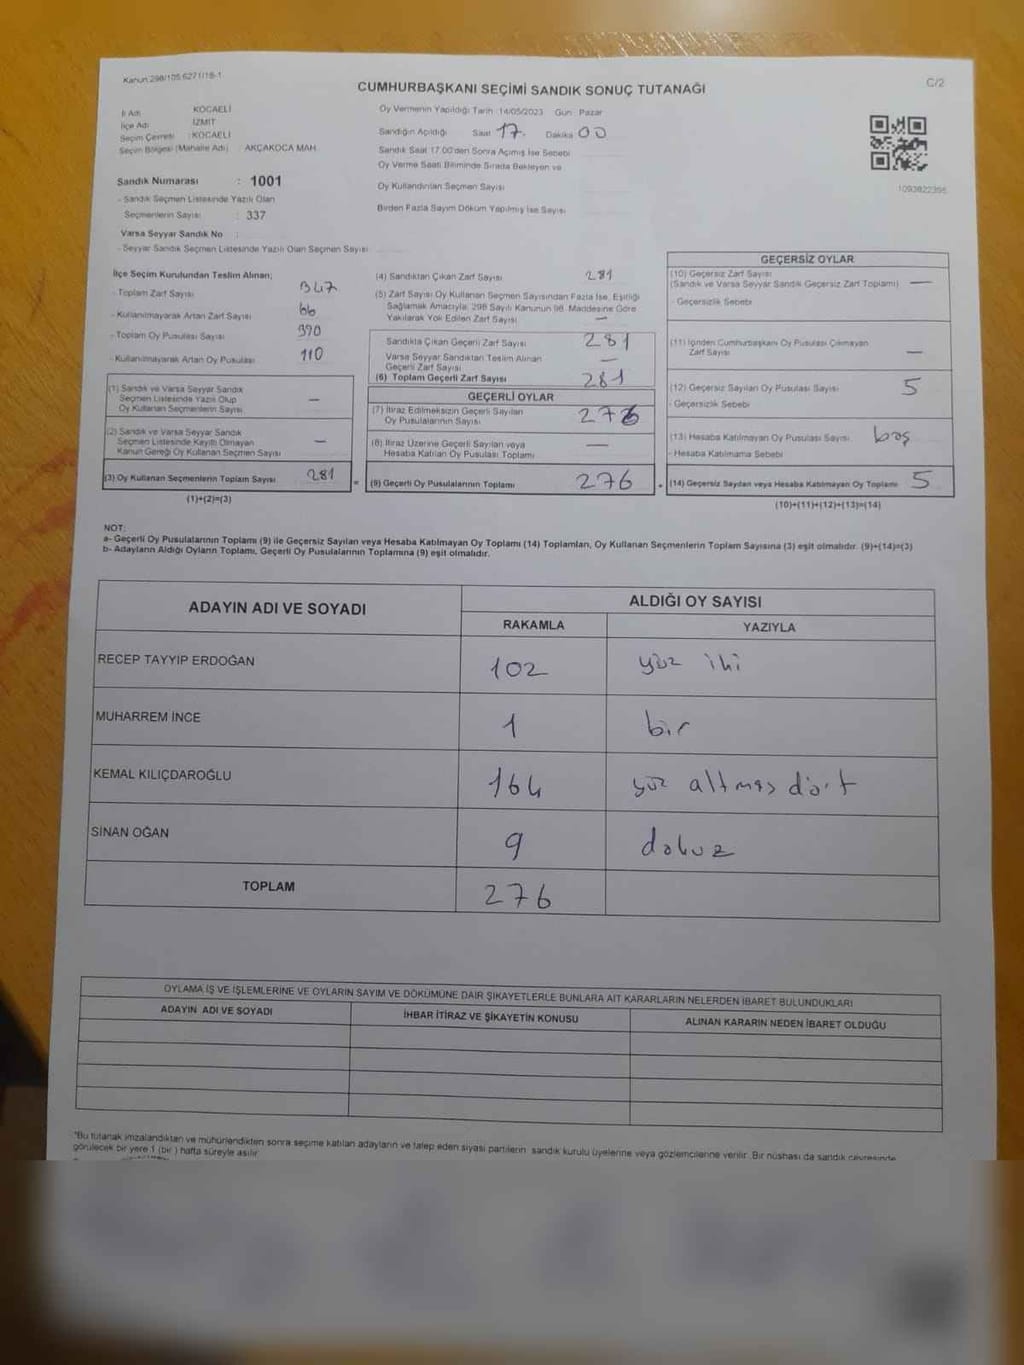 Kanun 298/105 6271/18-1
C/2
CUMHURBAŞKANI SEÇİMİ SANDIK SONUÇ TUTANAĞI
İl Adı KOCAELİ
İlçe Adı İZMİT
Seçim Çevresi : KOCAELİ
Seçim Bölgesi (Mahalle Adı) : AKÇAKOCA MAH.
Sandık Numarası : 1001
- Sandık Seçmen Listesinde Yazılı Olan
Seçmenlerin Sayısı : 337
Varsa Seyyar Sandık No :
- Seyyar Sandık Seçmen Listesinde Yazılı Olan Seçmen Sayısı
Oy Vermenin Yapıldığı Tarih :14/05/2023 Gün : Pazar
Sandığın Açıldığı Saat 17. Dakika 00
Sandık Saat 17.00'den Sonra Açılmış İse Sebebi
Oy Verme Saati Bitiminde Sırada Bekleyen ve
Oy Kullandırılan Seçmen Sayısı
Birden Fazla Sayım Döküm Yapılmış İse Sayısı
1093822395
İlçe Seçim Kurulundan Teslim Alınan;
- Toplam Zarf Sayısı 347
- Kullanılmayarak Artan Zarf Sayısı 66
- Toplam Oy Pusulası Sayısı 390
- Kullanılmayarak Artan Oy Pusulası 110
(1) Sandık ve Varsa Seyyar Sandık
Seçmen Listesinde Yazılı Olup
Oy Kullanan Seçmenlerin Sayısı —
(2) Sandık ve Varsa Seyyar Sandık
Seçmen Listesinde Kayıtlı Olmayan
Kanun Gereği Oy Kullanan Seçmen Sayısı —
(3) Oy Kullanan Seçmenlerin Toplam Sayısı 281
(1)+(2)=(3)
(4) Sandıktan Çıkan Zarf Sayısı 281
(5) Zarf Sayısı Oy Kullanan Seçmen Sayısından Fazla İse, Eşitliği
Sağlamak Amacıyla, 298 Sayılı Kanunun 98. Maddesine Göre
Yakılarak Yok Edilen Zarf Sayısı —
Sandıkta Çıkan Geçerli Zarf Sayısı 281
Varsa Seyyar Sandıktan Teslim Alınan
Geçerli Zarf Sayısı —
(6) Toplam Geçerli Zarf Sayısı 281
GEÇERLİ OYLAR
(7) İtiraz Edilmeksizin Geçerli Sayılan
Oy Pusulalarının Sayısı 276
(8) İtiraz Üzerine Geçerli Sayılan veya
Hesaba Katılan Oy Pusulası Toplamı —
= (9) Geçerli Oy Pusulalarının Toplamı 276
GEÇERSİZ OYLAR
(10) Geçersiz Zarf Sayısı
(Sandık ve Varsa Seyyar Sandık Geçersiz Zarf Toplamı) —
- Geçersizlik Sebebi
(11) İçinden Cumhurbaşkanı Oy Pusulası Çıkmayan
Zarf Sayısı —
(12) Geçersiz Sayılan Oy Pusulası Sayısı 5
- Geçersizlik Sebebi
(13) Hesaba Katılmayan Oy Pusulası Sayısı boş
- Hesaba Katılmama Sebebi
+ (14) Geçersiz Sayılan veya Hesaba Katılmayan Oy Toplamı 5
(10)+(11)+(12)+(13)=(14)
NOT:
a- Geçerli Oy Pusulalarının Toplamı (9) ile Geçersiz Sayılan veya Hesaba Katılmayan Oy Toplamı (14) Toplamları, Oy Kullanan Seçmenlerin Toplam Sayısına (3) eşit olmalıdır. (9)+(14)=(3)
b- Adayların Aldığı Oyların Toplamı, Geçerli Oy Pusulalarının Toplamına (9) eşit olmalıdır.
ADAYIN ADI VE SOYADI ALDIĞI OY SAYISI
RAKAMLA YAZIYLA
RECEP TAYYİP ERDOĞAN 102 yüz iki
MUHARREM İNCE 1 bir
KEMAL KILIÇDAROĞLU 164 yüz altmış dört
SİNAN OĞAN 9 dokuz
TOPLAM 276
OYLAMA İŞ VE İŞLEMLERİNE VE OYLARIN SAYIM VE DÖKÜMÜNE DAİR ŞİKAYETLERLE BUNLARA AİT KARARLARIN NELERDEN İBARET BULUNDUKLARI
ADAYIN ADI VE SOYADI İHBAR İTİRAZ VE ŞİKAYETİN KONUSU ALINAN KARARIN NEDEN İBARET OLDUĞU
*Bu tutanak imzalandıktan ve mühürlendikten sonra seçime katılan adayların ve talep eden siyasi partilerin sandık kurulu üyelerine veya gözlemcilerine verilir. Bir nüshası da sandık çevresinde
görülecek bir yere 1 (bir) hafta süreyle asılır.